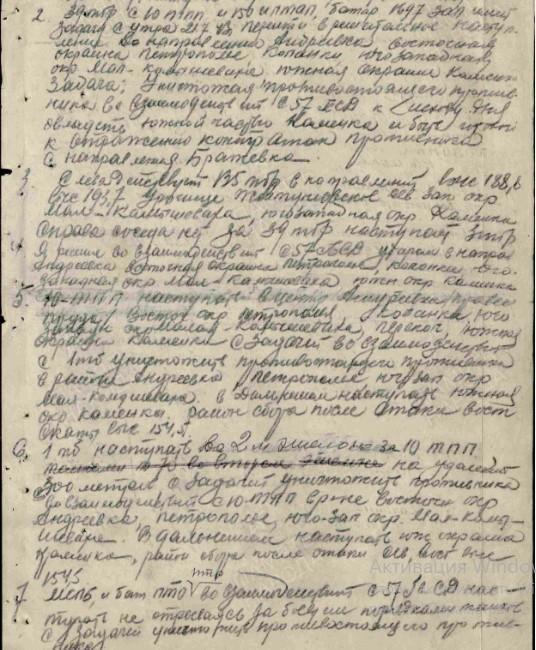 2. 39 тбр с 10 ТПП и 1501 иптап, батар 1697 зап имеет
задачу с утра 21.7 перейти в решительное наступ-
ление во направлении Андреевка, восточная
окраина Петрополье, Копанки, юго западная
окр Мал-Камышеваха, южная окраина Каменка
Задача: Уничтожая противостоящего против-
ника во взаимодействии с 57 ГвСД к исходу дня
овладеть южной частью Каменка и быть готовой
к отражению контратак противника
с направления Бражевка.
3. Слева действует 135 тбр в направлении выс 188,6
выс 193,7 урочище сев зап окр
Мал-Камышеваха, юго западная окр Каменка
Справа соседа нет за 39 тбр наступает 3 тбр
4. Я решил во взаимодействии с 57 гвСД ударом в направ
Андреевка восточная окраина Петрополье, Копанки юго-
западная окр Мал-Камышеваха южн окр Каменка
5. 10-ТПП наступать в центр Андреевка правее
пруда, восточ окр Петрополья Копанка, юго
запад окр Малая-Камышеваха, южная
окраина Каменки с задачей во взаимодействии
с 1 тб уничтожить противостоящего противника
в районе Андреевка Петрополье юго зап окр
Мал-Камышеваха. в дальнейшем наступать южная
окр Каменка. район сбора после атаки вост
скаты выс 154,5.
6. 1 тб наступать во 2м эшелоне за 10 ТПП
во втором эшелоне на удалении
300 метров с задачей уничтожить противника
во взаимодействии с 10 ТПП в р-не восточн окр
Андреевка, Петрополье, юго-зап окр. Мал-Камы-
шеваха. В дальнейшем наступать юж окраина
Каменка, район сбора после атаки сев вост выс
154,5
7. МСПБ, и бат ПТО птр во взаимодействии с 57 гвСД нас-
тупать не отрываясь за боевыми порядками танков
с задачей уничтожить противостоящего против-
ника
Активация Windows